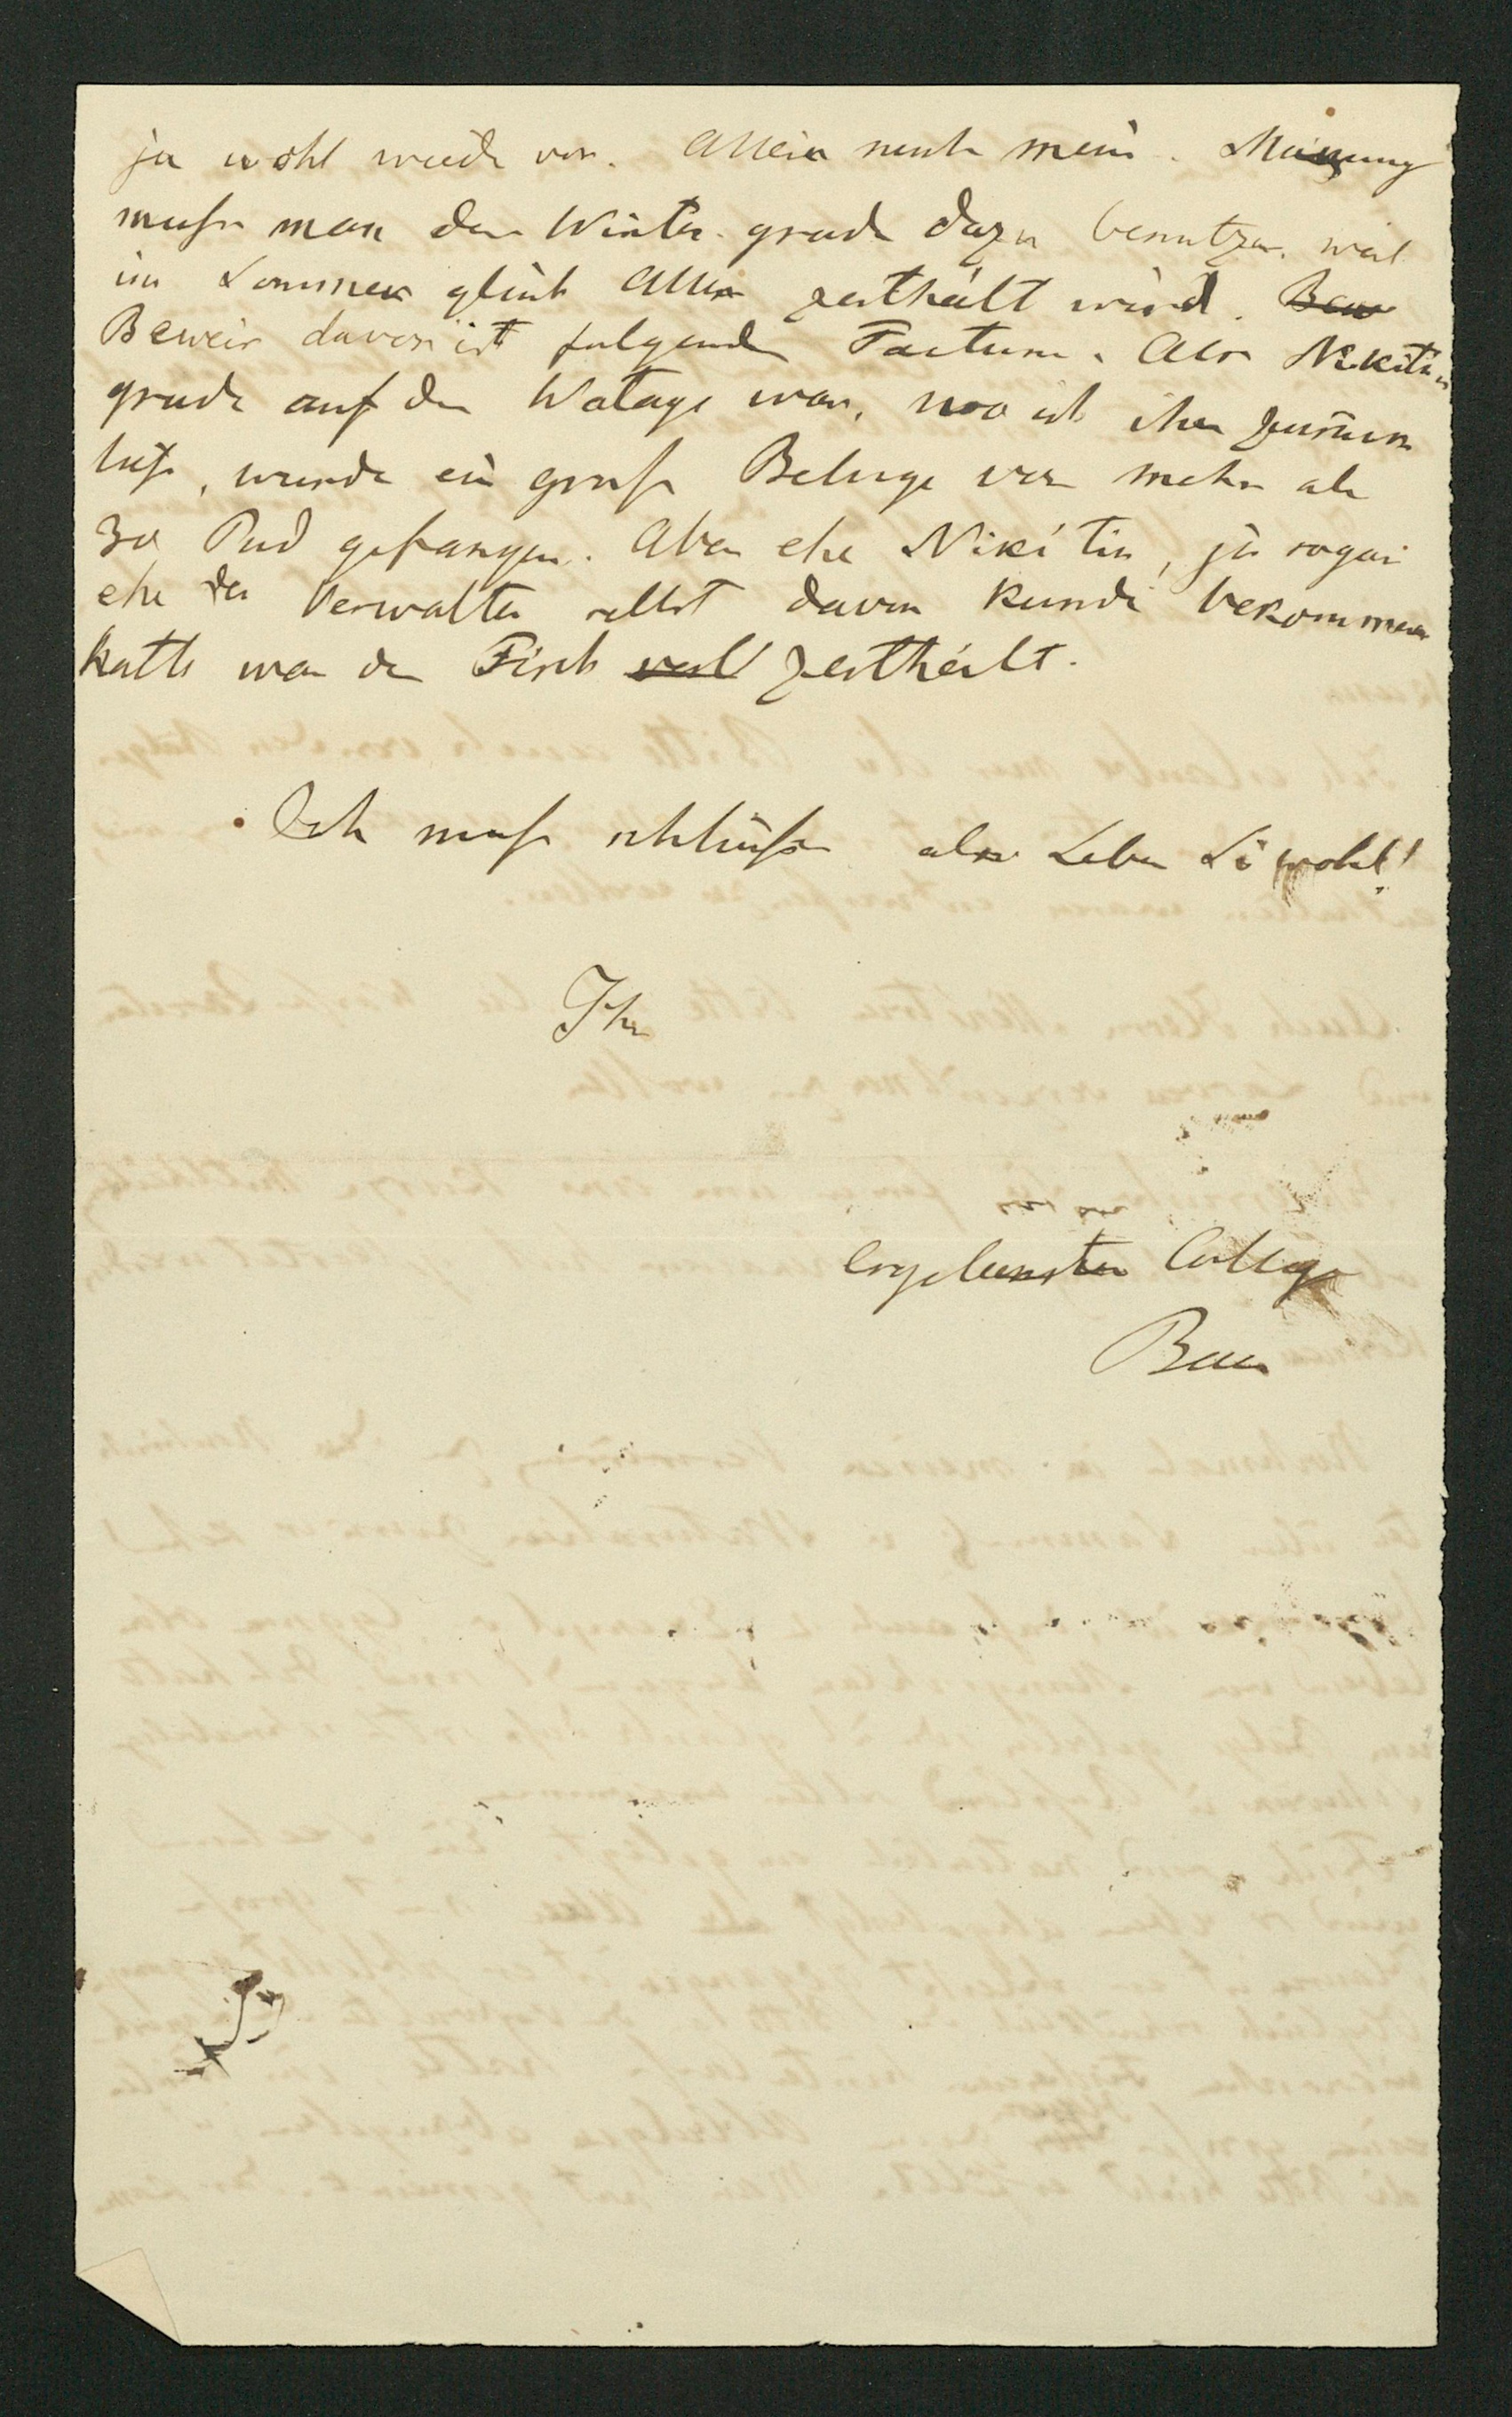 ja wohl wieder vor. Allein nach meiner Meinung
muss man den Winter grade dazu benutzen, weil
im Sommer gleich Alles zertheilt wird. Bew
Beweis davon ist folgendes Factum. Als Nikitin
grade auf der Watage war, wo ich ihn zurück
liess, wurde ein grosser Beluga von mehr als
30 Pud gefangen. Aber ehe Nikitin, ja sogar
ehe der Verwalter selbst davon Kunde bekommen
hatte war der Fisch zertheilt.
Ich muss schliessen also Leben Sie wohl!
Ihr
ergebenster College
Baer